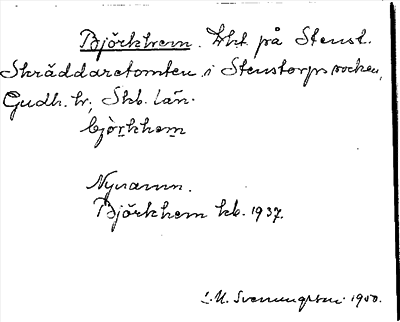 Björkhem. Lht på Stenst.
Skräddaretomten i Stenstorps socken,
Gudh. hr, Skb. län.
bjòrkhem
Nynamn.
Björkhem kb. 1937.
S.U. Svenungsson 1950.